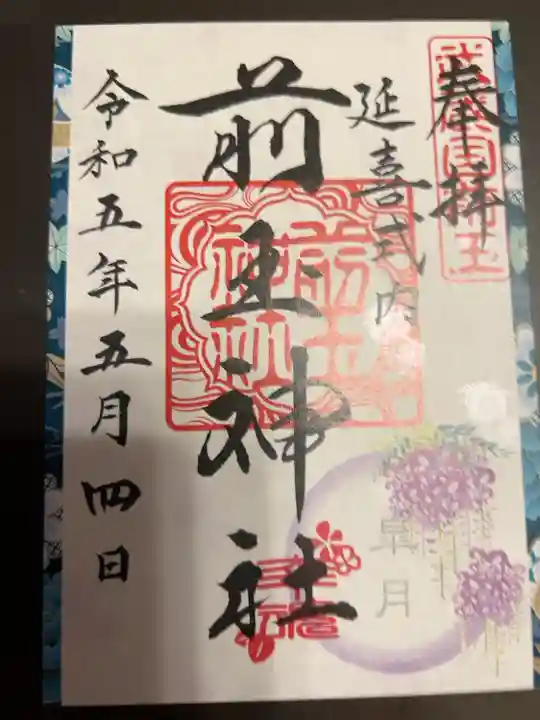 奉拝
武蔵国埼玉
延喜式内
前玉神社
前玉神社
皐月
令和五年五月四日